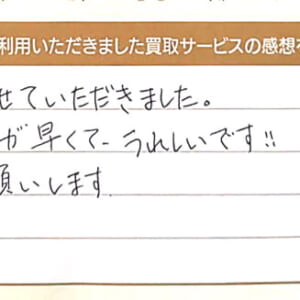 利用いただきました買取サービスの感想
せていただきました。
が早くて、うれしいです!!
願いします